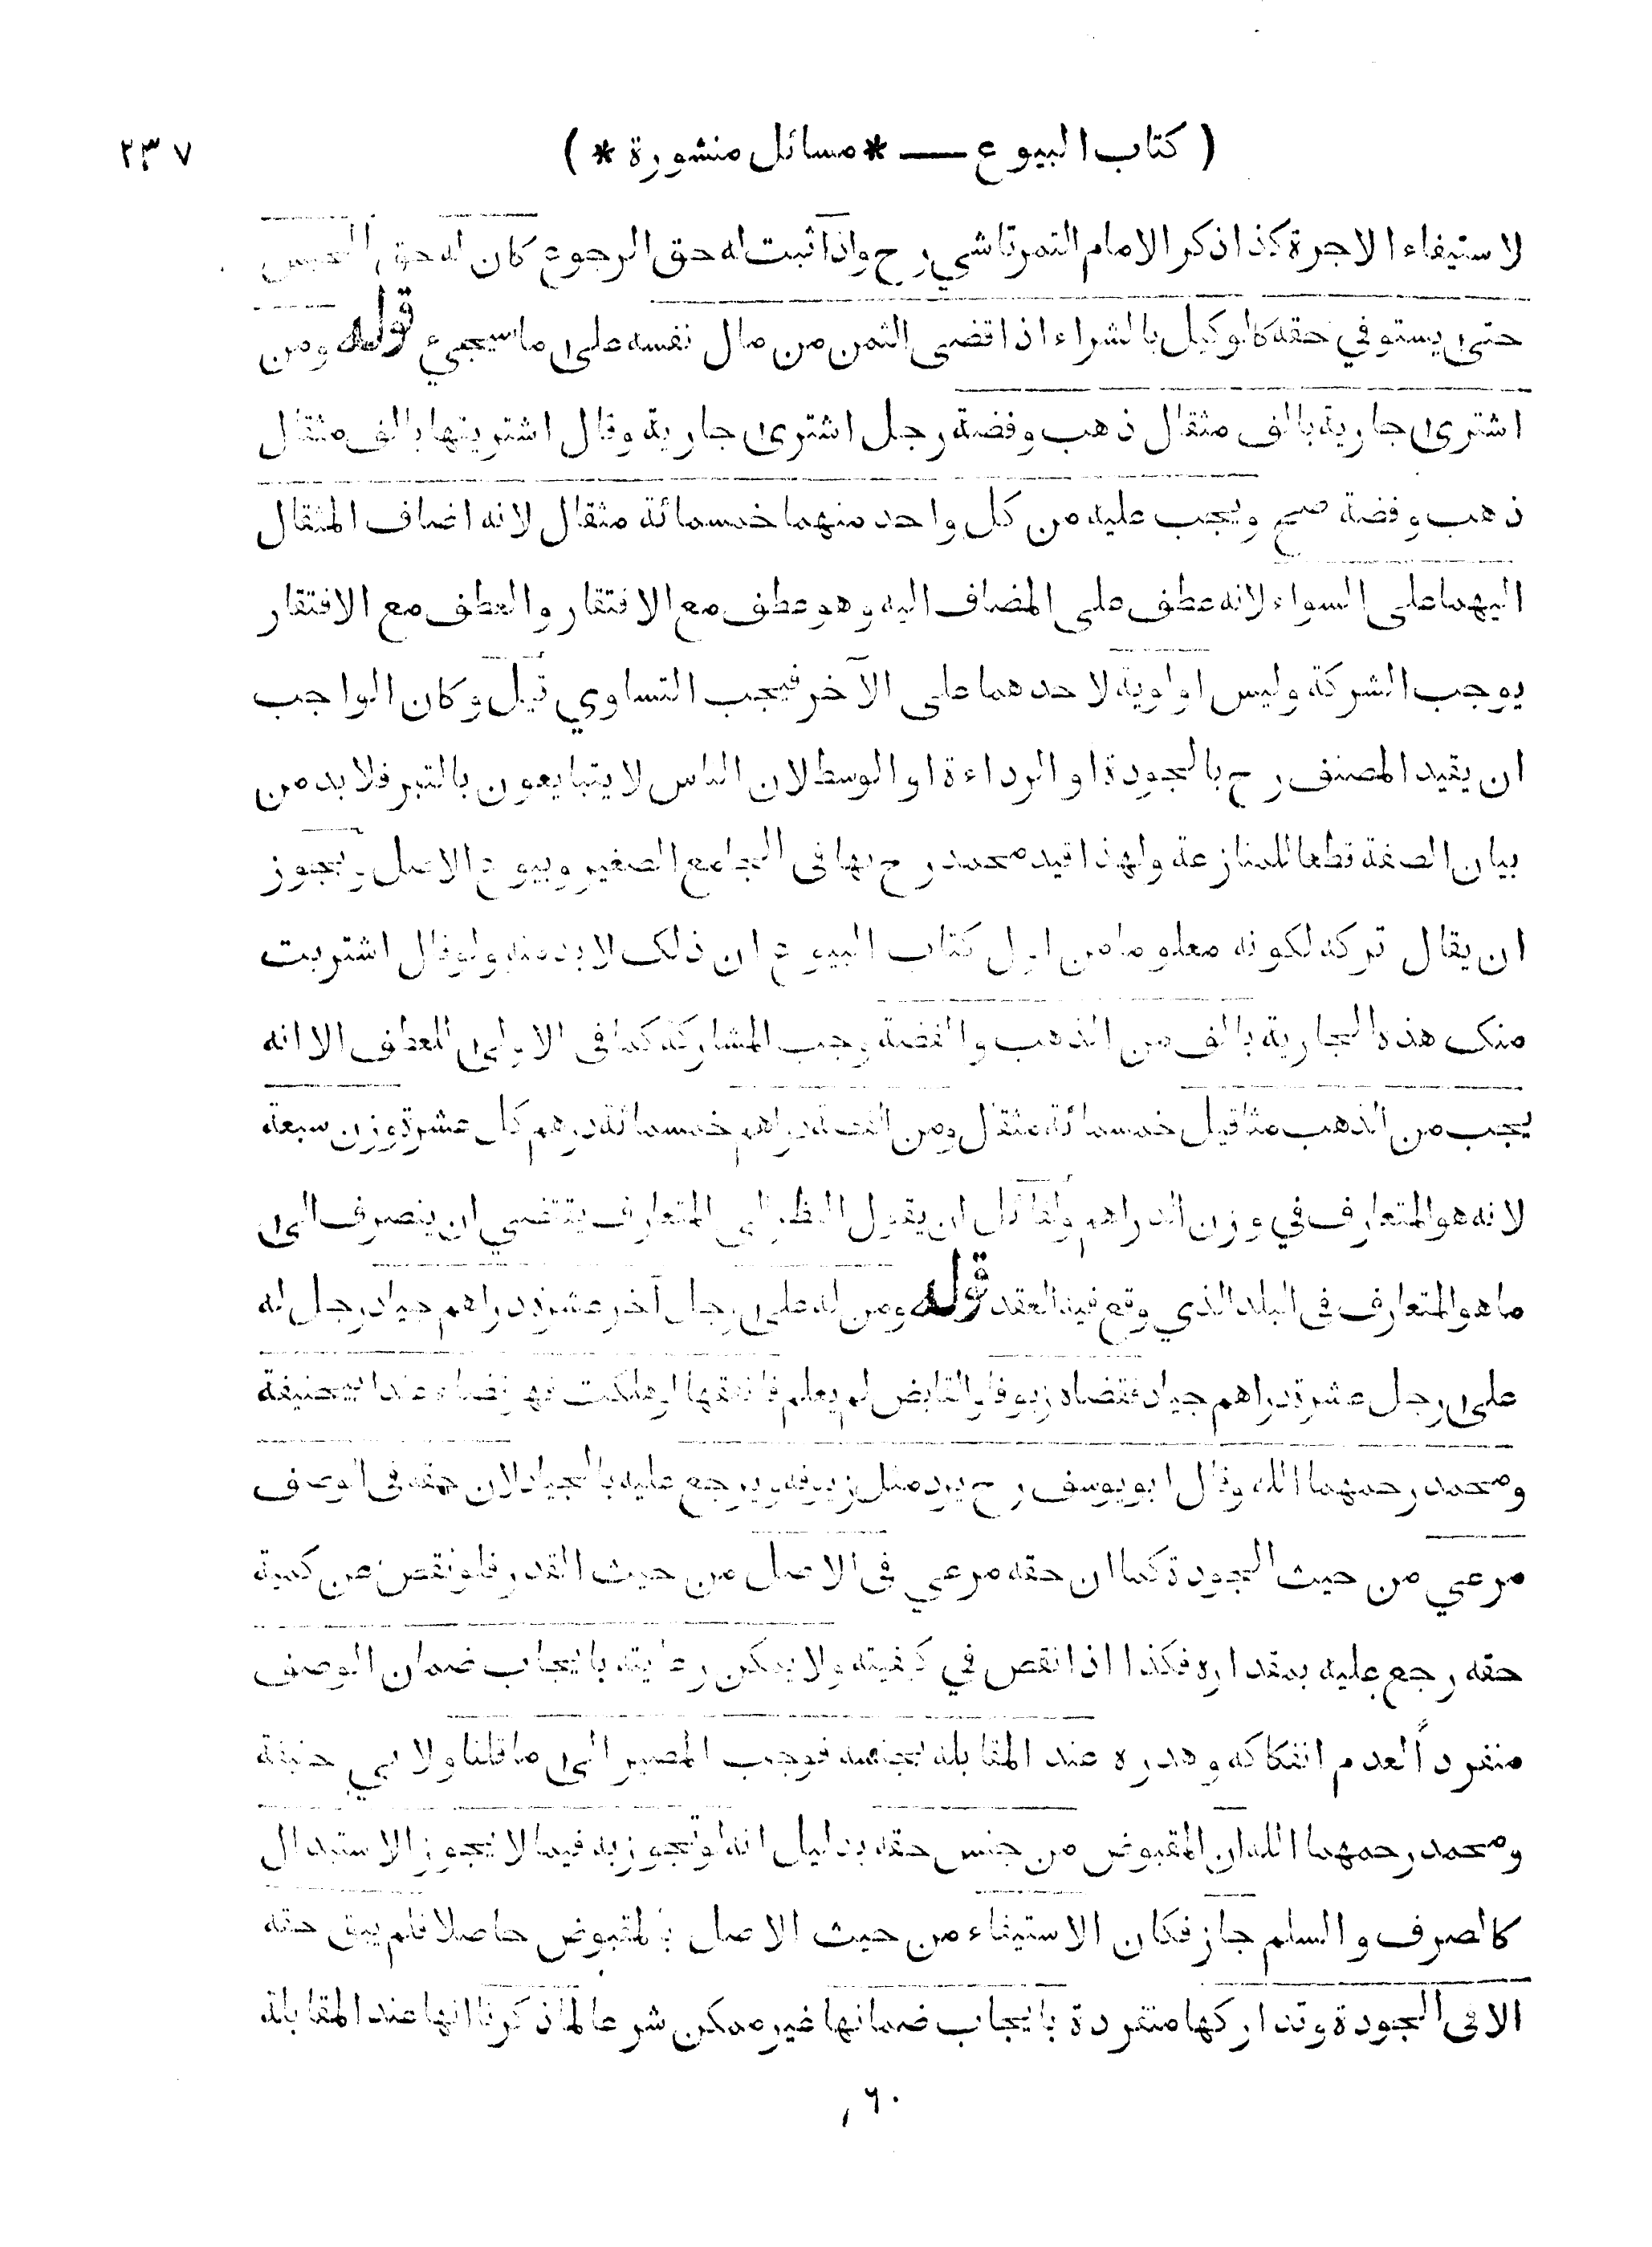 ( كتاب البيوع — * مسائل منشورة * ) ٢٣٧
لاستيفاء الاجرة كذا ذكر الامام التمرتاشي رح واذا ثبت له حق الرجوع كان له حق الحبس
حتى يستوفي حقه كالوكيل بالشراء اذا قضى الثمن من مال نفسه على ما سيجيء قوله ومن
اشترى جارية بالف مثقال ذهب وفضة رجل اشترى جارية وقال اشتريتها بالف مثقال
ذهب وفضة صح ويجب عليه من كل واحد منهما خمسمائة مثقال لانه اضاف المثقال
اليهما على السواء لانه عطف على المضاف اليه وهو عطف مع الافتقار والعطف مع الافتقار
يوجب الشركة وليس اولوية لاحدهما على الآخر فيجب التساوي قيل وكان الواجب
ان يقيد المصنف رح بالجودة او الرداءة او الوسط لان الناس لا يتبايعون بالتبر فلا بد من
بيان الصفة قطعا للمنازعة ولهذا قيد محمد رح بها في الجامع الصغير وبيوع الاصل ويجوز
ان يقال تركه لكونه معلوما من اول كتاب البيوع ان ذلك لا بد منه ولو قال اشتريت
منك هذه الجارية بالف من الذهب والفضة وجب المشاركة كما في الاولى للعطف الا انه
يجب من الذهب مثاقيل خمسمائة مثقال ومن الفضة دراهم خمسمائة درهم كل عشرة وزن سبعة
لانه هو المتعارف في وزن الدراهم ولقائل ان يقول النظر الى المتعارف يقتضي ان ينصرف الى
ما هو المتعارف في البلد الذي وقع فيه العقد قوله ومن له على رجل آخر عشرة دراهم جياد رجل له
على رجل عشرة دراهم جياد فقضاه زيوفا والقابض لم يعلم فانفقها او هلكت فهو قضاء عند ابيحنيفة
ومحمد رحمهما الله وقال ابو يوسف رح يرد مثل زيوفه ويرجع عليه بالجياد لان حقه في الوصف
مرعي من حيث الجودة كما ان حقه مرعي في الاصل من حيث القدر فلو نقص عن كمية
حقه رجع عليه بمقداره فكذا اذا نقص في كيفيته ولا يمكن رعايته بايجاب ضمان الوصف
منفرداً لعدم انفكاكه وهدره عند المقابلة بجنسه فوجب المصير الى ما قلنا ولابي حنيفة
ومحمد رحمهما الله ان المقبوض من جنس حقه بدليل انه لو تجوز به فيما لا يجوز الاستبدال
كالصرف والسلم جاز فكان الاستيفاء من حيث الاصل بالمقبوض حاصلا فلم يبق حقه
الا في الجودة وتداركها منفردة بايجاب ضمانها غير ممكن شرعا لما ذكرنا انها عند المقابلة